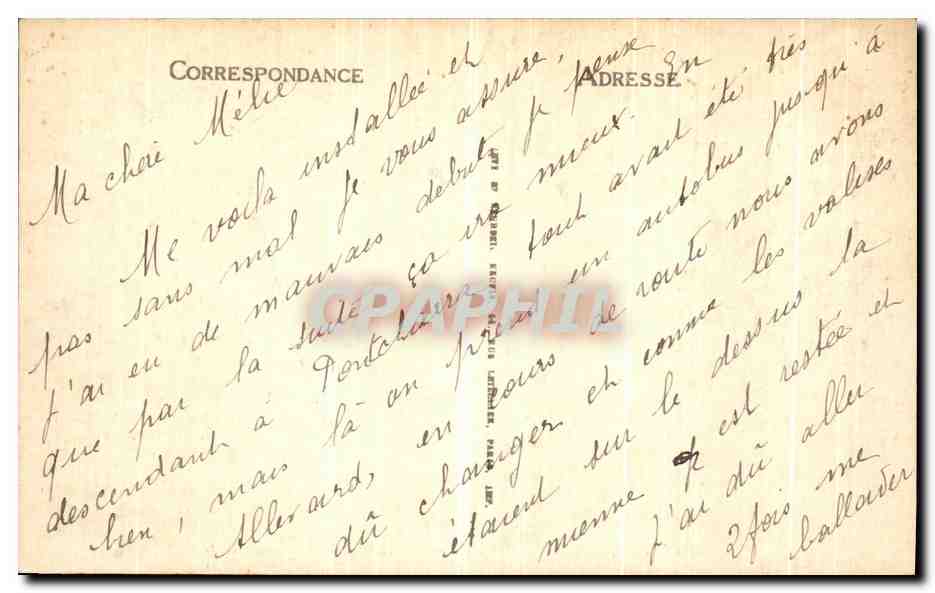 CORRESPONDANCE
ADRESSE
Ma chère Mélie
Me voilà installée et
pas sans mal je vous assure,
j'ai eu de mauvais début je pense
que par la suite ça ira mieux. En
descendant à Pontcharra tout avait été très
bien, mais là on prend un autobus jusqu'à
Allevard, en cours de route nous avons
dû changer et comme les valises
étaient sur le dessus la
mienne est restée et
J'ai dû aller
2 fois me
ballader
CPAPHIL